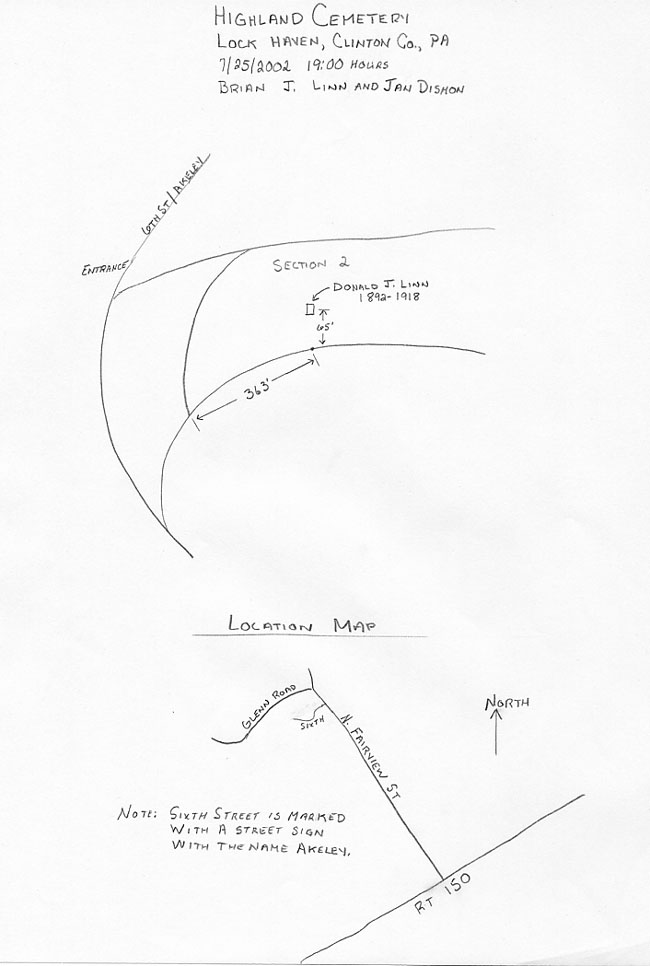 HIGHLAND CEMETERY
LOCK HAVEN, CLINTON CO., PA
7/25/2002 19:00 HOURS
BRIAN J. LINN AND JAN DISHON
6TH ST/AKELEY
ENTRANCE
SECTION 2
DONALD J. LINN
1892-1918
65'
363'
LOCATION MAP
GLENN ROAD
SIXTH
N. FAIRVIEW ST
NORTH
NOTE: SIXTH STREET IS MARKED
WITH A STREET SIGN
WITH THE NAME AKELEY.
RT 150